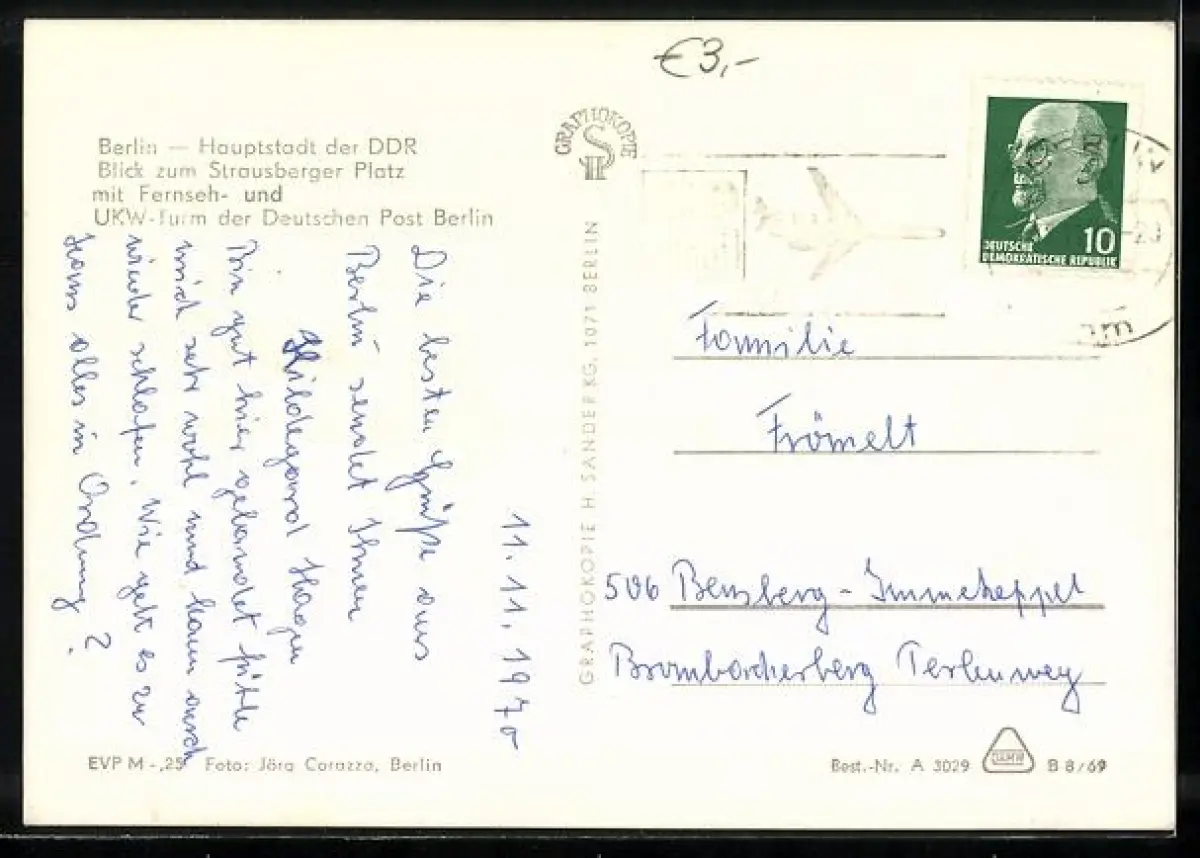 €3,-
Berlin — Hauptstadt der DDR
Blick zum Strausberger Platz
mit Fernseh- und
UKW-Turm der Deutschen Post Berlin
11.11.1970
Die besten Grüße aus
Berlin sendet Ihnen
Hildegard Hagen
Bin gut hier gelandet fühle
mich sehr wohl und kann auch
wieder schlafen. Wie geht es zu
Haus alles in Ordnung?
EVP M -,25 Foto: Jörg Carazzo, Berlin
GRAPHOKOPIE
GRAPHOKOPIE H. SANDER KG, 1071 BERLIN
10
DEUTSCHE
DEMOKRATISCHE REPUBLIK
Familie
Frömelt
506 Bensberg-Immekeppel
Brombacherberg Terlenweg
Best.-Nr. A 3029 B 8/69